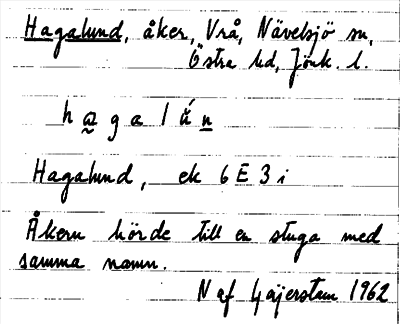 Hagalund, åker, Vrå, Nävelsjö sn,
Östra hd, Jönk. l.
h a g a l ú n
Hagalund, ek 6 E 3 i
Åkern hörde till en stuga med
samma namn.
N af Gajerstam 1962